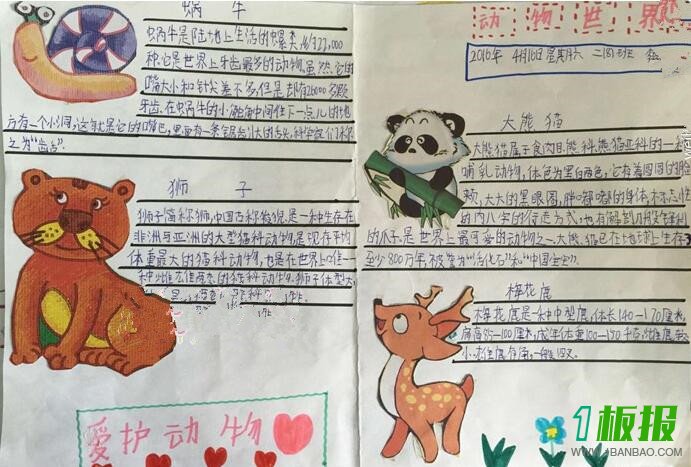 蜗 牛
蜗牛是陆地上生活的螺类,约22,000
种,它是世界上牙齿最多的动物。虽然它的
嘴大小和针尖差不多,但是却有26000多颗
牙齿。在蜗牛的小触角中间往下一点儿的地
方有一个小洞,这就是它的嘴巴,里面有一条锯齿状的舌头,科学家们称
之为“齿舌”。
狮 子
狮子简称狮,中国古称狻猊,是一种生存在
非洲与亚洲的大型猫科动物,是现存平均
体重最大的猫科动物,也是在世界上唯一一
种雌雄两态的猫科动物。狮子体型大,
爱护动物
动物世界
2016年 4月16日星期六 二(8)班
大熊猫
大熊猫属于食肉目,熊科,熊猫亚科的一种
哺乳动物,体色为黑白两色,它有着圆圆的脸
颊,大大的黑眼圈,胖嘟嘟的身体,标志性
的内八字的行走方式,也有解剖刀般锋利
的爪子。是世界上最可爱的动物之一。大熊猫已在地球上生存了
至少800万年,被誉为“活化石”和“中国国宝”。
梅花鹿
梅花鹿是一种中型鹿,体长140—170厘米,
肩高85—100厘米,成年体重100—150千克,雌鹿较
小,雄鹿有角,一般四叉。
1板报
WWW.1BANBAO.COM